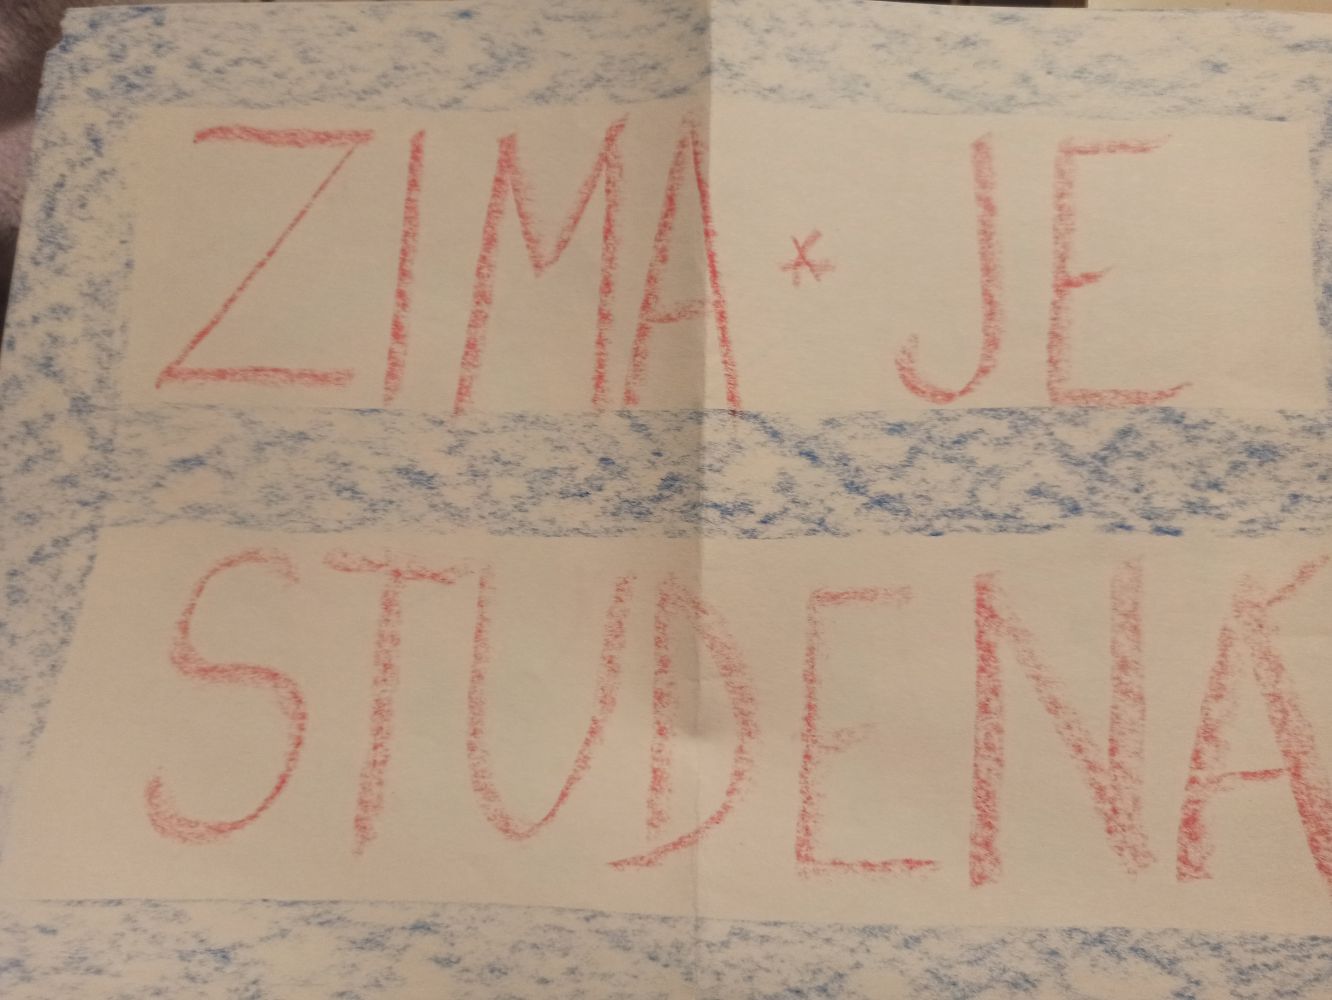 ZIMA * JE
STUDENÁ